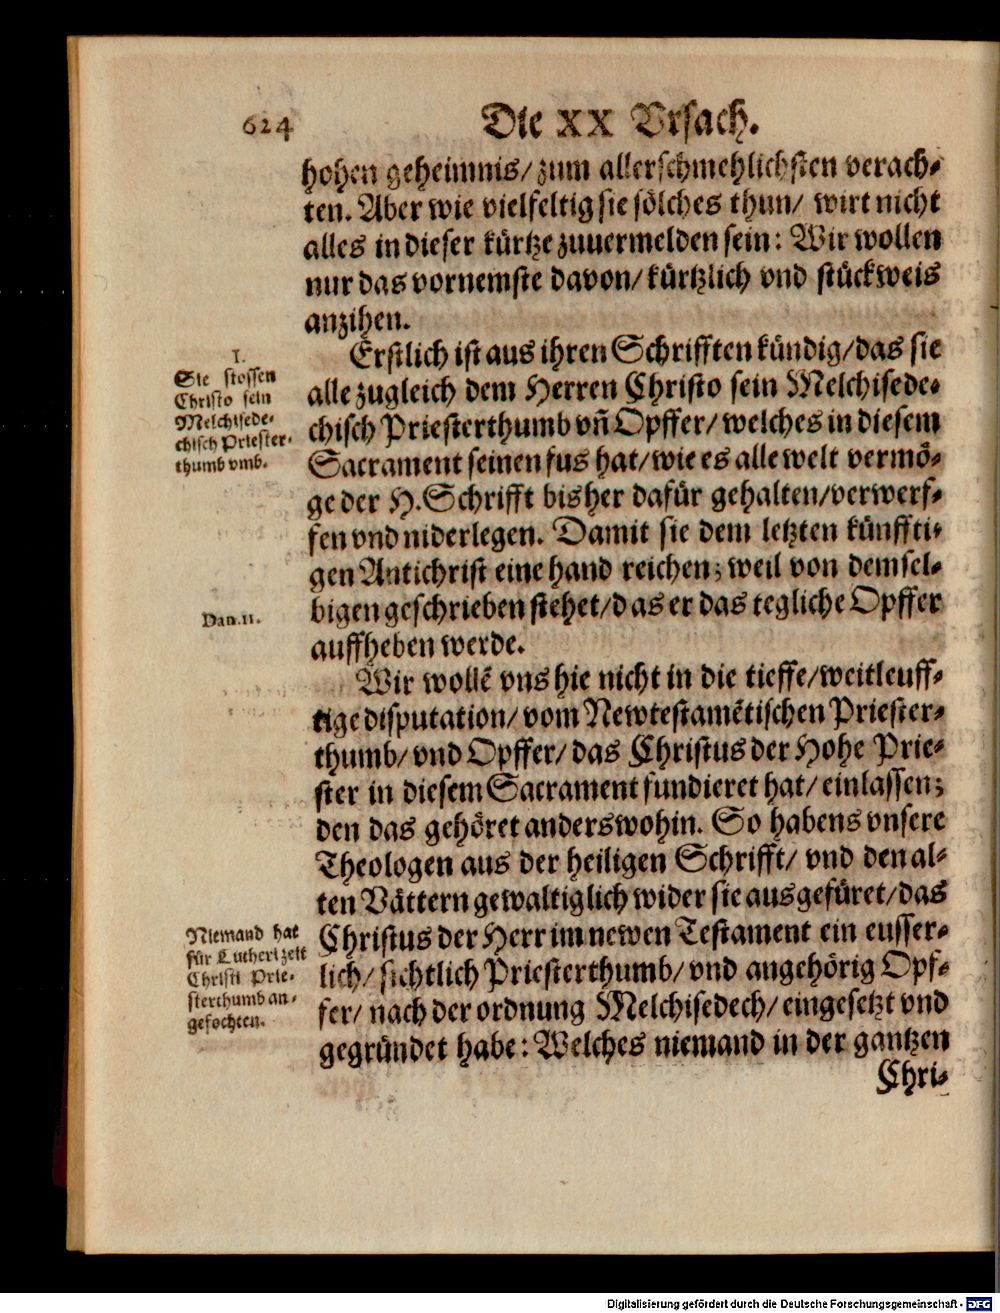 624
Die XX Vrsach.
hohen geheimnis/ zum allerschmehlichsten verach⸗
ten. Aber wie vielfeltig sie sölches thun/ wirt nicht
alles in dieser kürtze zuuermelden sein: Wir wollen
nur das vornemste davon/ kürtzlich vnd stückweis
anzihen.
1.
Sie stossen
Christo sein
Melchisede⸗
chisch Priester⸗
thumb vmb.
Erstlich ist aus ihren Schrifften kündig/ das sie
alle zugleich dem Herren Christo sein Melchisede⸗
chisch Priesterthumb vn̄ Opffer/ welches in diesem
Sacrament seinen fus hat/ wie es alle welt vermö⸗
ge der H. Schrifft bis her dafür gehalten/ verwerf⸗
fen vnd niderlegen. Damit sie dem letzten künffti⸗
gen Antichrist eine hand reichen; weil von demsel⸗
bigen geschrieben stehet/ das er das tegliche Opffer
auffheben werde.
Dan. 11.
Wir wollē vns hie nicht in die tieffe/ weitleuff⸗
tige disputation/ vom Newtestamētischen Priester⸗
thumb/ vnd Opffer/ das Christus der Hohe Prie⸗
ster in diesem Sacrament fundieret hat/ einlassen;
den das gehöret anderswohin. So habens vnsere
Theologen aus der heiligen Schrifft/ vnd den al⸗
ten Vättern gewaltiglich wider sie ausgefüret/ das
Christus der Herr im newen Testament ein eusser⸗
lich/ sichtlich Priesterthumb/ vnd angehörig Opf⸗
fer/ nach der ordnung Melchisedech/ eingesetzt vnd
gegründet habe: Welches niemand in der gantzen
Niemand hat
für Lutheri zeit
Christi Prie⸗
sterthumb an⸗
gefochten.
Chri⸗
Digitalisierung gefördert durch die Deutsche Forschungsgemeinschaft - DFG